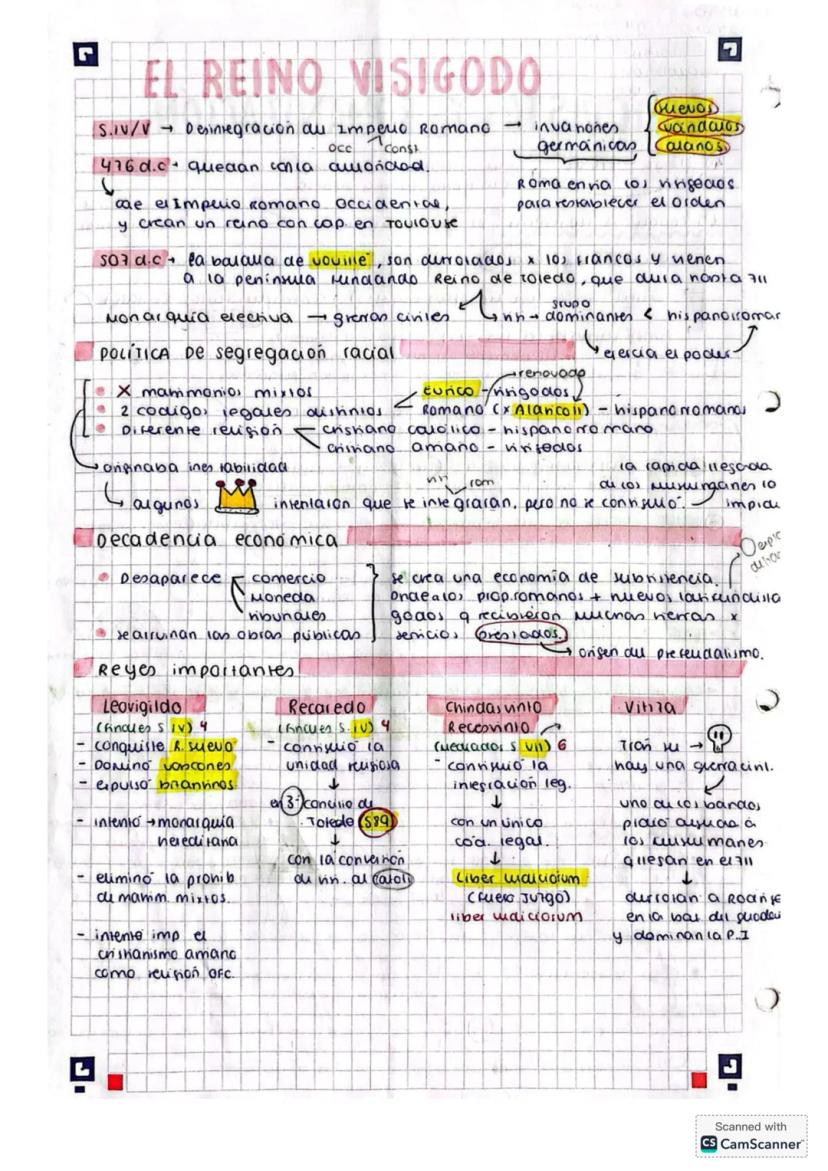 EL REINO VISIGODO
S.IV/V → Desintegración del Imperio Romano → invasiones germánicas { suevos vándalos alanos
occ Const
476 d.C → quedan con la autoridad.
Roma envía los visigodos
cae el Imperio Romano Occidental,
para restablecer el orden
y crean un reino con cap. en Toulouse
507 d.C → la batalla de Vouillé, son derrotados x los francos y vienen
a la península fundando Reino de Toledo, que dura hasta 711
Monarquía electiva → guerras civiles
grupo
vis → dominantes < hispanorromar
ejercía el poder
POLÍTICA DE segregación racial
renovado
• X matrimonios mixtos
Eurico - visigodos
• 2 códigos legales distintos
Romano (x Alarico II) - hispanorromanos
• Diferente religión
cristiano católico - hispanorromano
cristiano arriano - visigodos
originaba inestabilidad
vis rom
la rápida llegada
de los musulmanes lo
impide
algunos intentaron que se integraran, pero no se consiguió.
Decadencia económica
• Desaparece
comercio
moneda
tribunales
• se arruinan las obras públicas
se crea una economía de subsistencia.
prop. romanos + nuevos latifundista
godos q recibieron muchas tierras x
servicios prestados.
→ origen del prefeudalismo.
Reyes importantes
Leovigildo
(finales S IV) 4
- conquistó R. suevo
- Dominó vascones
- expulsó bizantinos
- intentó → monarquía
hereditaria
- eliminó la prohib
de matrim. mixtos.
- intentó imp el
cristianismo arriano
como religión ofc.
Recaredo
(finales S. IV) 4
- consiguió la
unidad religiosa
↓
en 3er concilio de
Toledo (589)
↓
con la conversión
de vis. al catol
Chindasvinto
Recesvinto
(mediados S VII) 6
- consiguió la
integración leg.
↓
con un único
cód. legal.
↓
Liber Iudiciorum
(Fuero Juzgo)
liber iudiciorum
Vitiza
Tras su →
hay una guerra civil.
uno de los bandos
pidió ayuda a
los musulmanes
q llegan en el 711
↓
derrotan a Rodrige
en la bat del guadal
y dominan la P.I
Scanned with
CS CamScanner